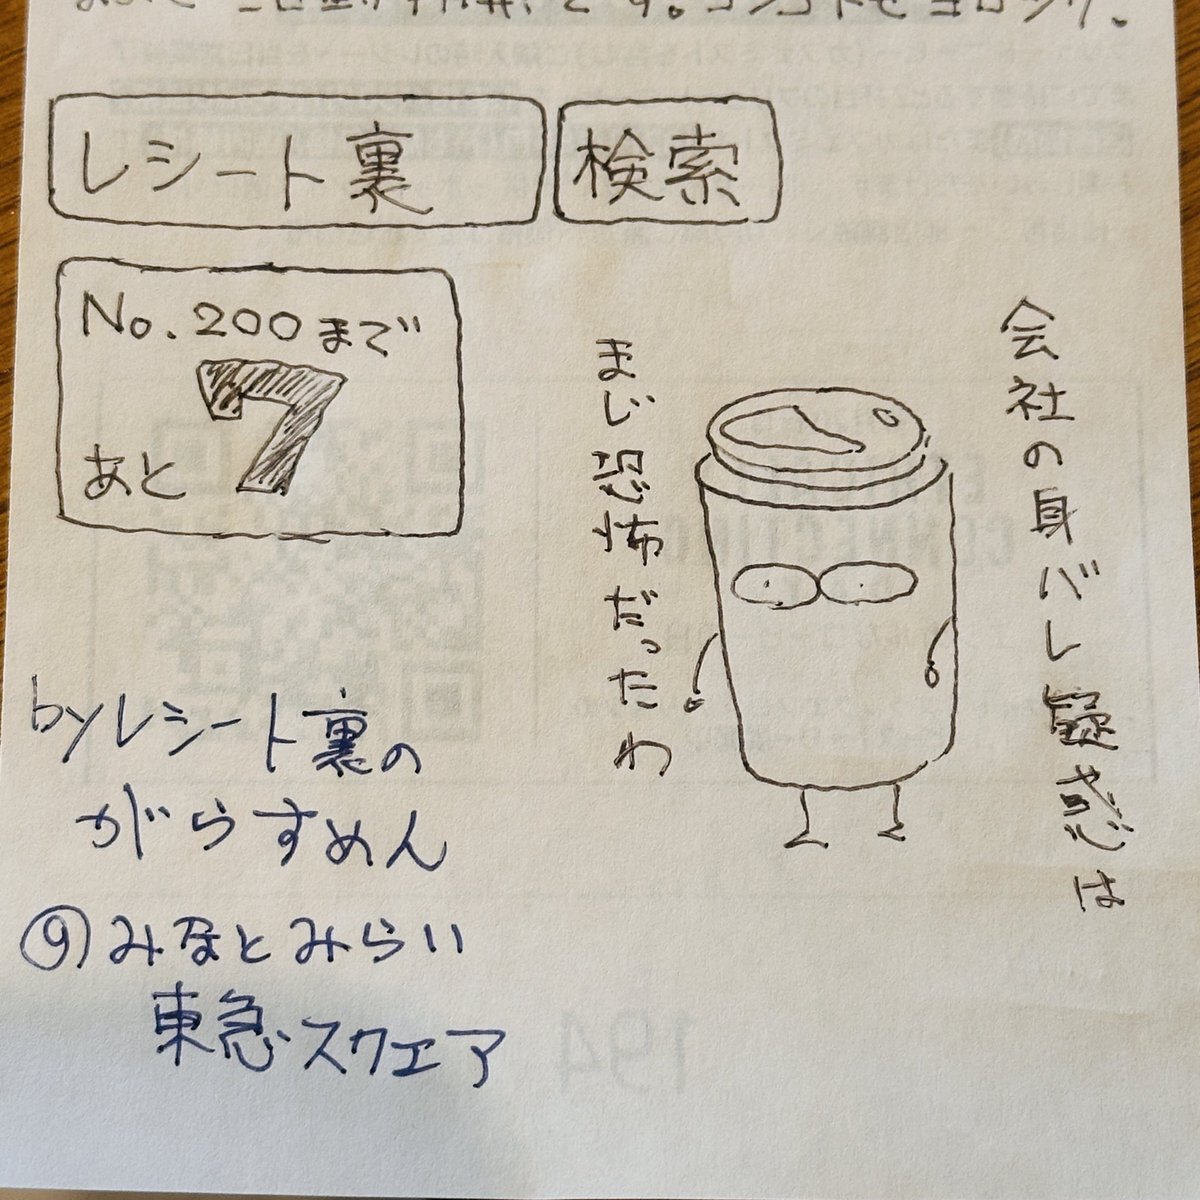 です。コンゴトモヨロシク。
レシート裏 検索
No.200まで
あと 7
会社の身バレ疑惑は
まじ恐怖だったわ
byレシート裏の
がらすめん
@みなとみらい
東急スクエア